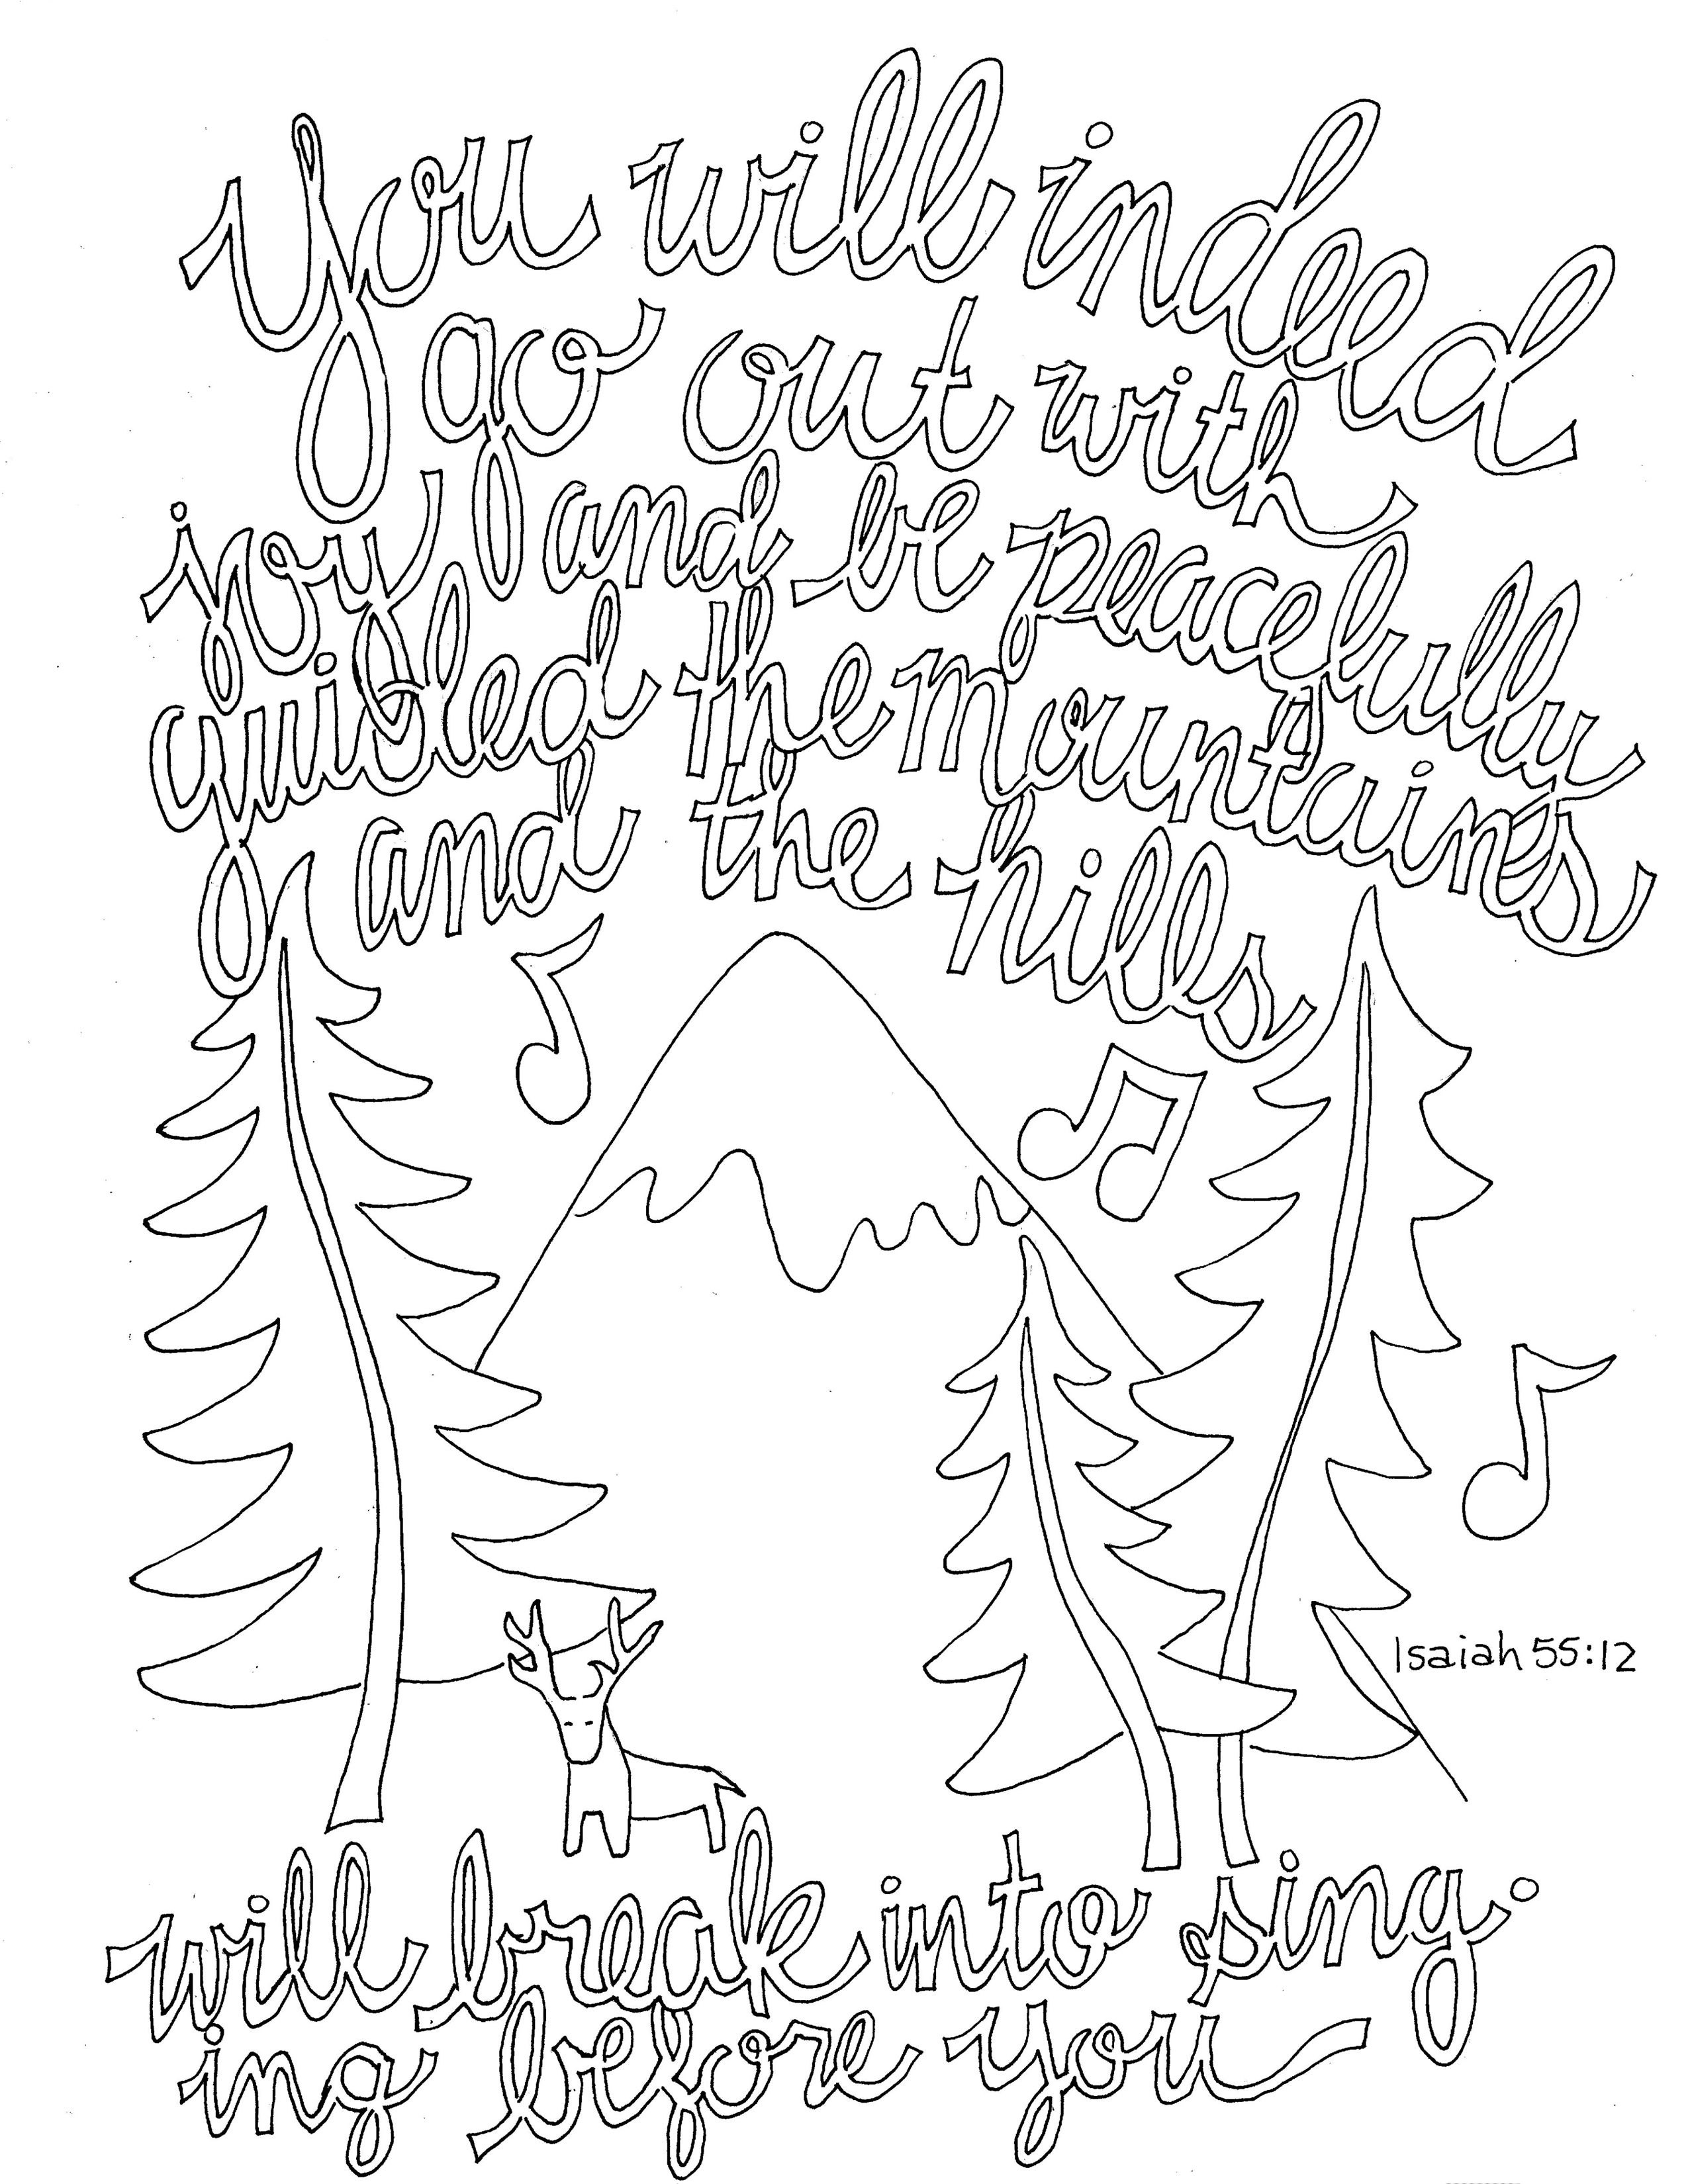 You will indeed
go out with
joy and be peacefully
guided the mountains
and the hills
Isaiah 55:12
will break into sing.
ing before you